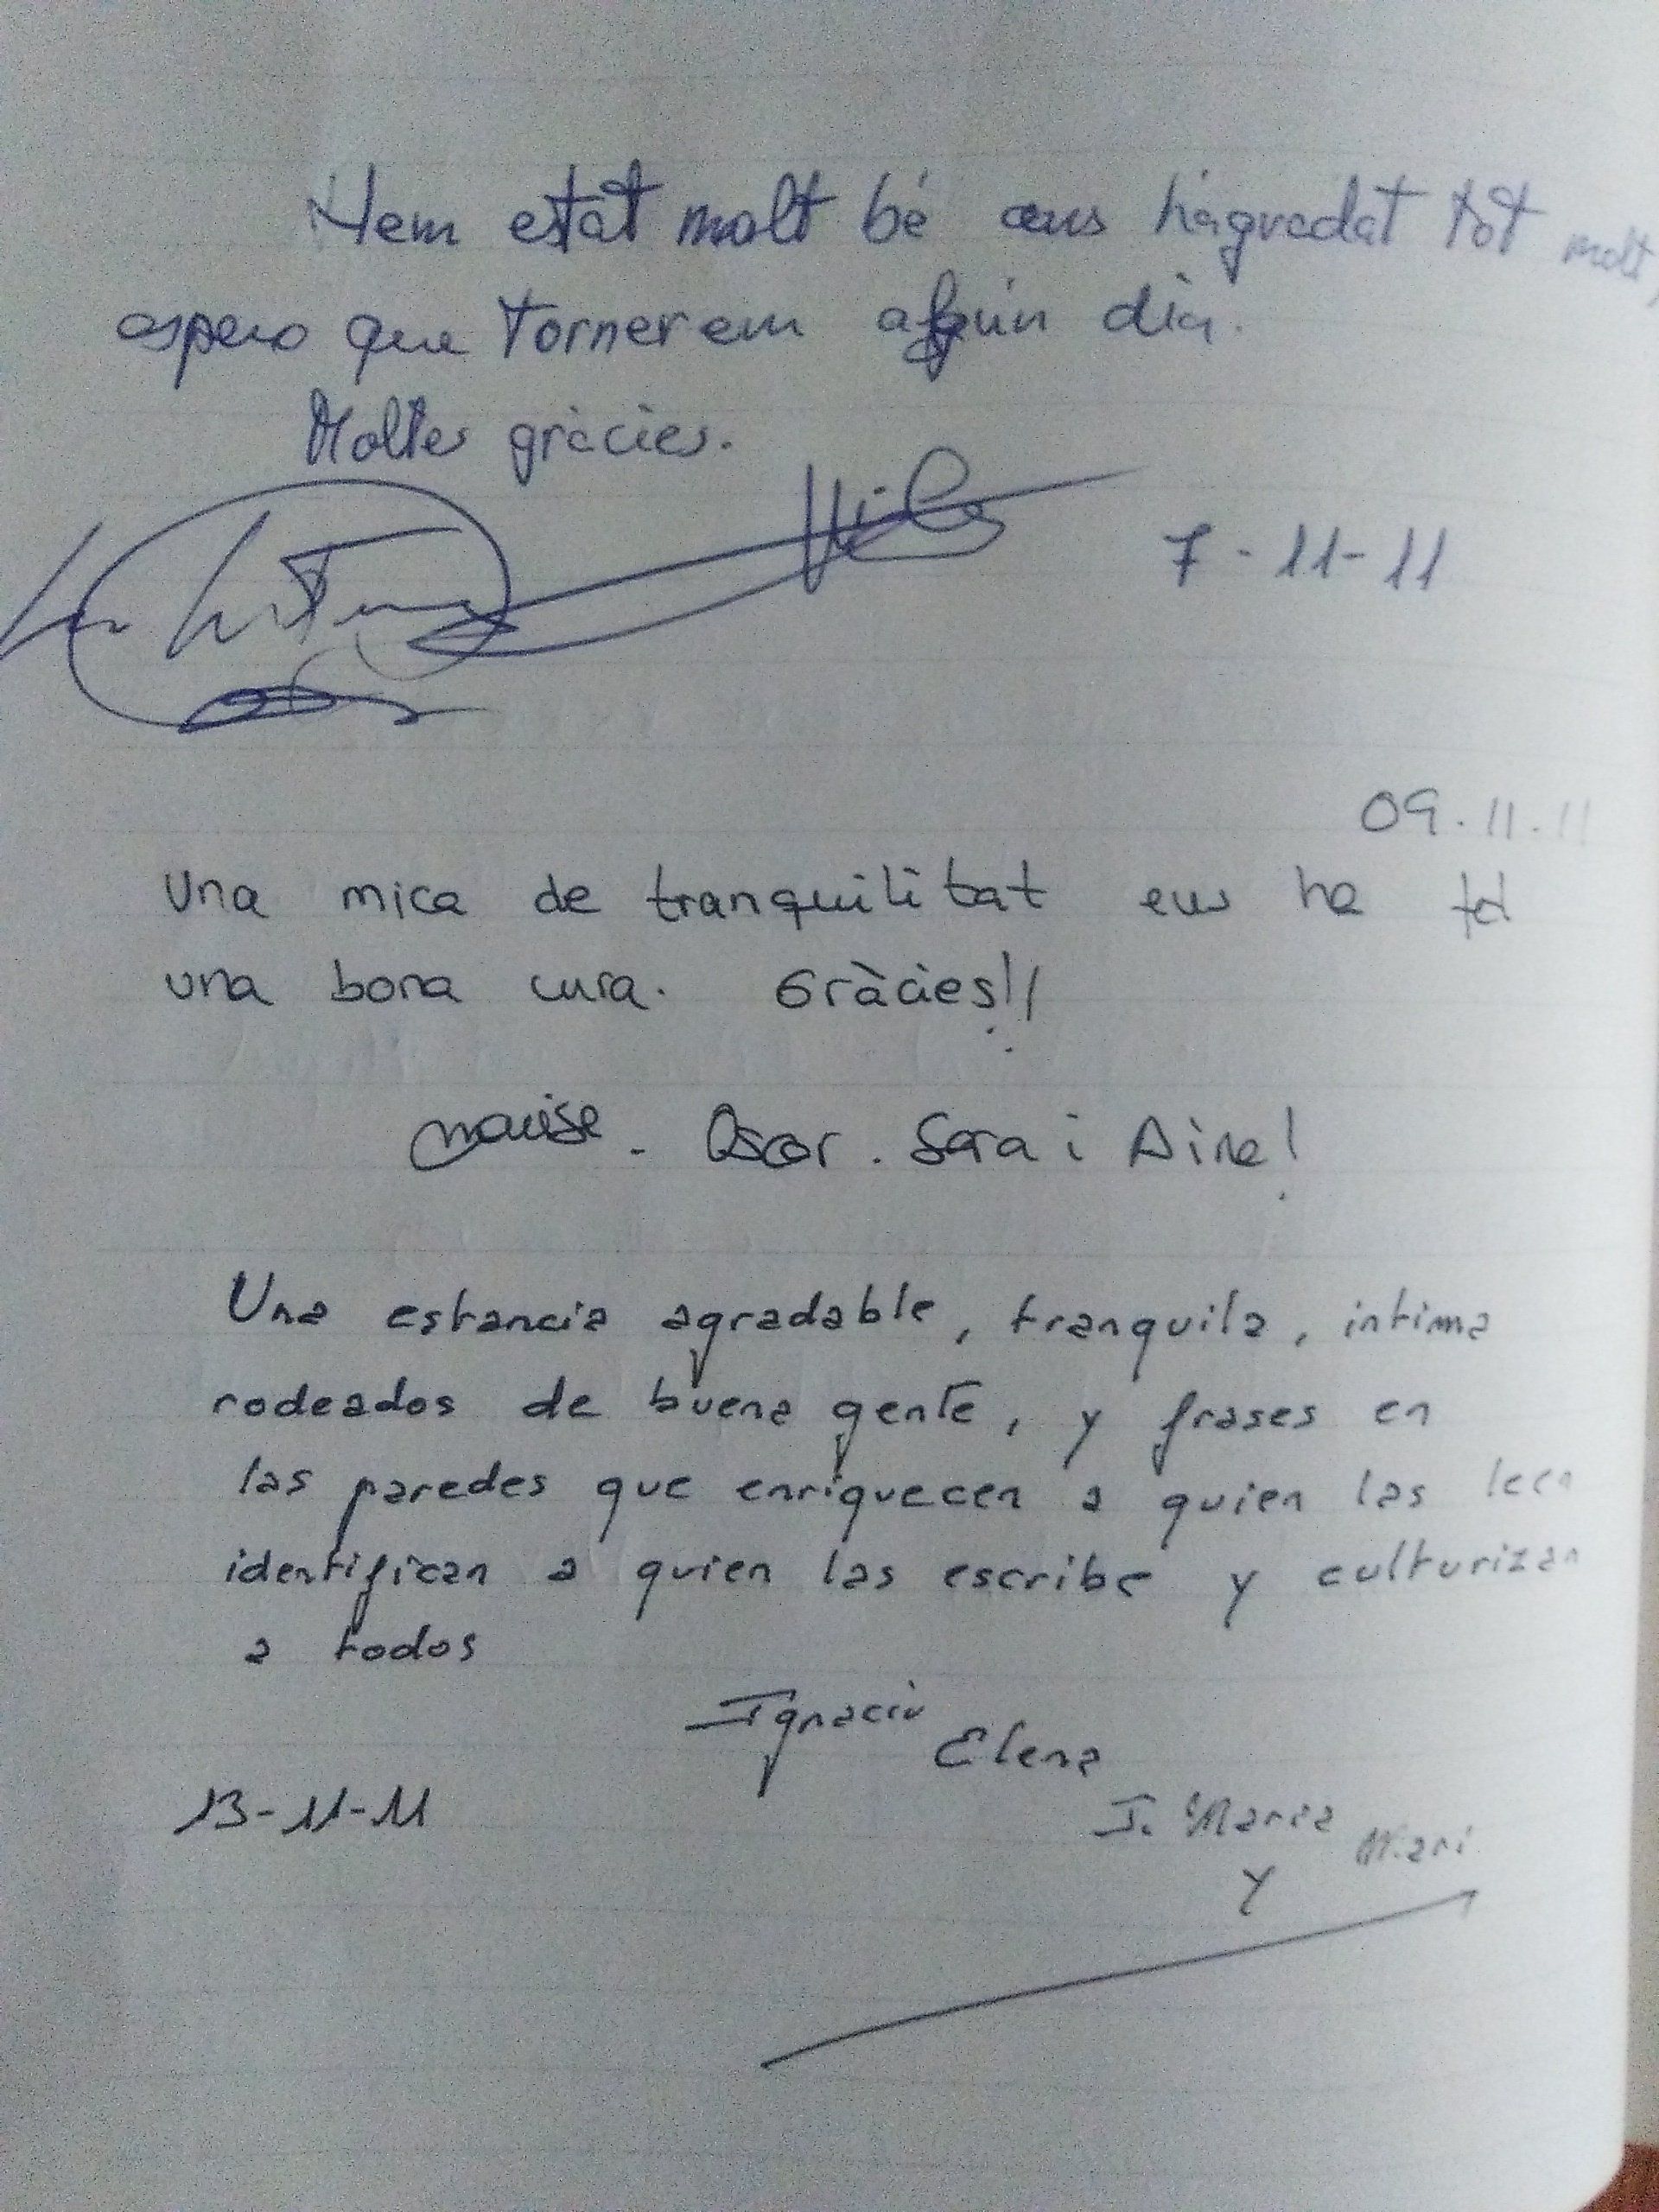 Hem estat molt bé ens há agradat tot molt,
espero que tornerem algún dia.
Moltes gràcies.
7-11-11
09.11.11
Una mica de tranquilitat ens ha fet
una bona cura. Gràcies!!
Oscar. Sara i Aina!
Una estancia agradable, tranquila, intima
rodeados de buena gente, y frases en
las paredes que enriquecen a quien las leen
identifican a quien las escribe y culturizan
a todos
Ignacio
Elena
J. Maria
Mari
y
13-11-11